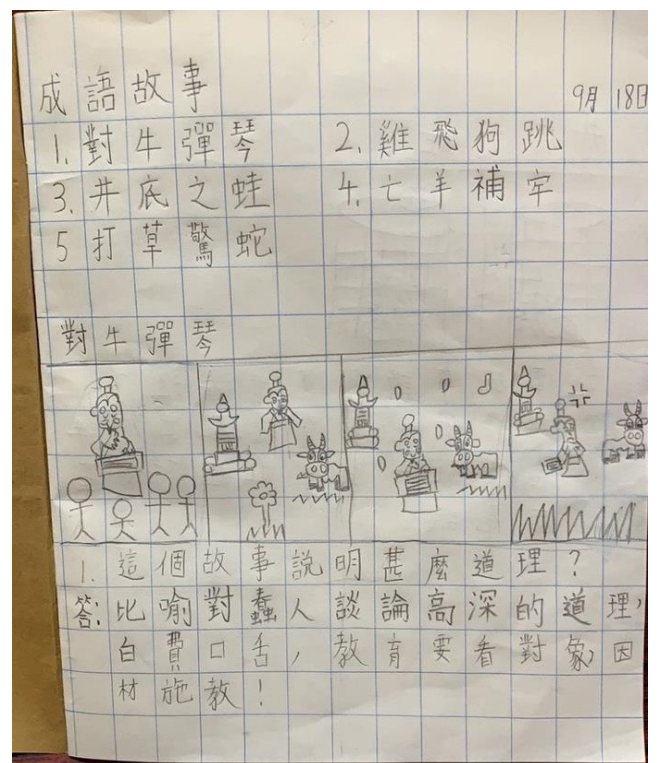 成語故事
9月18日
1.對牛彈琴 2.雞飛狗跳
3.井底之蛙 4.亡羊補牢
5打草驚蛇
對牛彈琴
1.這個故事說明甚麼道理?
答:比喻對蠢人談論高深的道理,
白費口舌,教育要看對象,因
材施教!